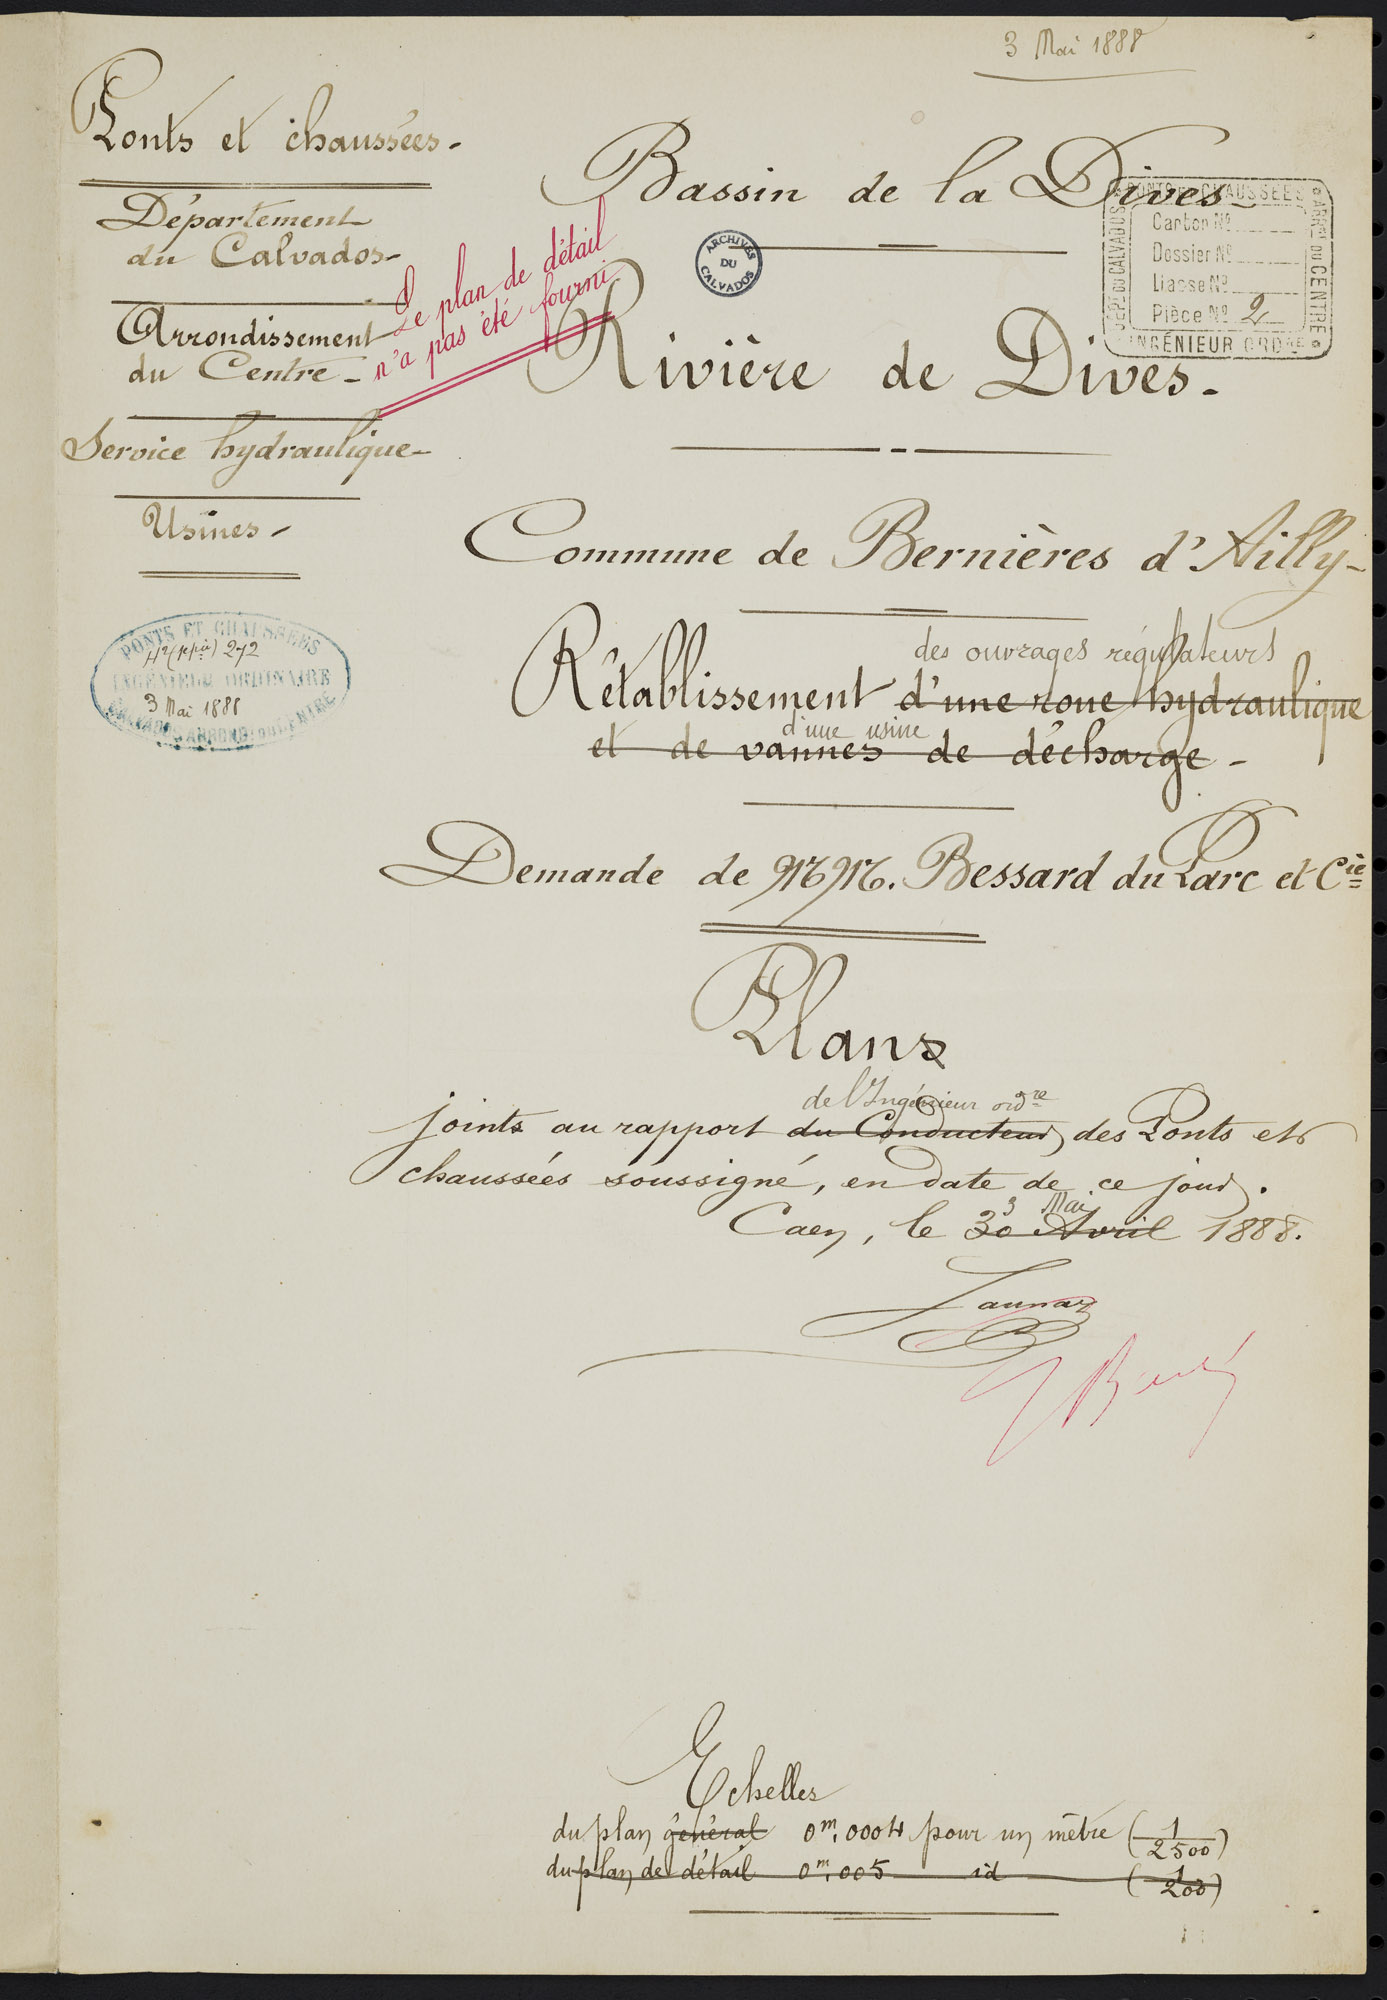 3 Mai 1888
Ponts et chaussées.
Département
du Calvados
Arrondissement
du Centre
Service hydraulique
Usines
PONTS ET CHAUSSÉES
272
INGÉNIEUR ORDINAIRE
3 Mai 1888
Le plan de détail
n'a pas été fourni
Bassin de la Dives
ARCHIVES
DU
CALVADOS
PONTS ET CHAUSSÉES
DÉPT DU CALVADOS
ARRNT DU CENTRE
Carton No
Dossier No
Liasse No
Pièce No 2
INGÉNIEUR ORDRE
Rivière de Dives.
Commune de Bernières d'Ailly
des ouvrages régulateurs
Rétablissement d'une roue hydraulique
d'une usine
et de vannes de décharge
Demande de MM. Bessard du Parc et Cie
Plans
de l'Ingénieur ordre
joints au rapport du Conducteur des Ponts et
chaussées soussigné, en date de ce jour.
3 Mai
Caen, le 30 Avril 1888.
Launay
Echelles
du plan général 0m,0004 pour un mètre (1/2500)
du plan de détail 0m,005 id (1/200)